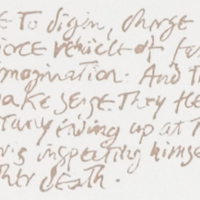 E To digin, charge
force vehicle of fa
magination. And Th
make sense They fle
Tary ending up at T
r is inspecting himse
her death.